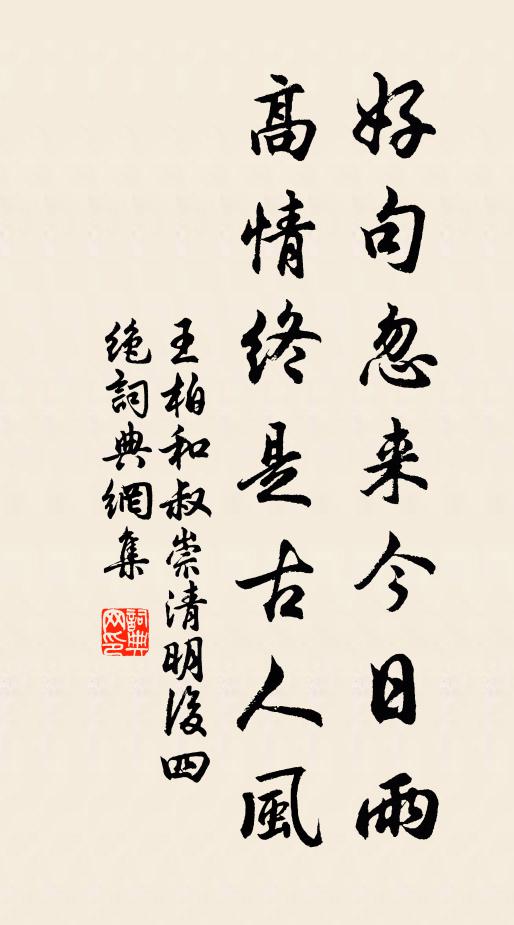 好句忽来今日雨
高情終是古人風
王柏和叔崇清明後四
絶詞典網集
詞典网印